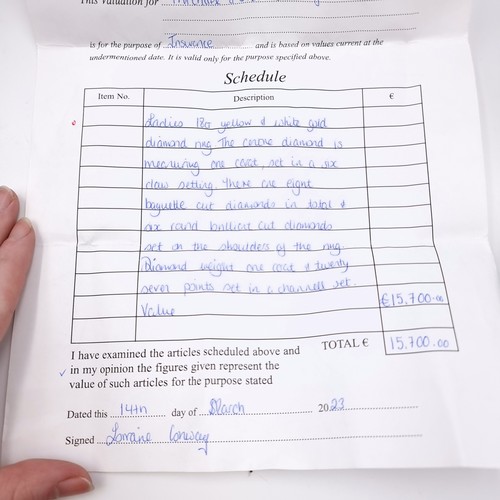 This Valuation for
is for the purpose of Insurance and is based on values current at the
undermentioned date. It is valid only for the purpose specified above.
Schedule
Item No. Description €
Ladies 18ct yellow & white gold
diamond ring. The centre diamond is
measuring one carat, set in a six
claw setting. There are eight
baguette cut diamonds in total &
six round brilliant cut diamonds
set on the shoulders of the ring.
Diamond weight one carat & twenty
seven points set in a channell set.
Value €15,700.00
TOTAL € 15,700.00
I have examined the articles scheduled above and
in my opinion the figures given represent the
value of such articles for the purpose stated
Dated this 14th day of March 2023
Signed Lorraine Conway